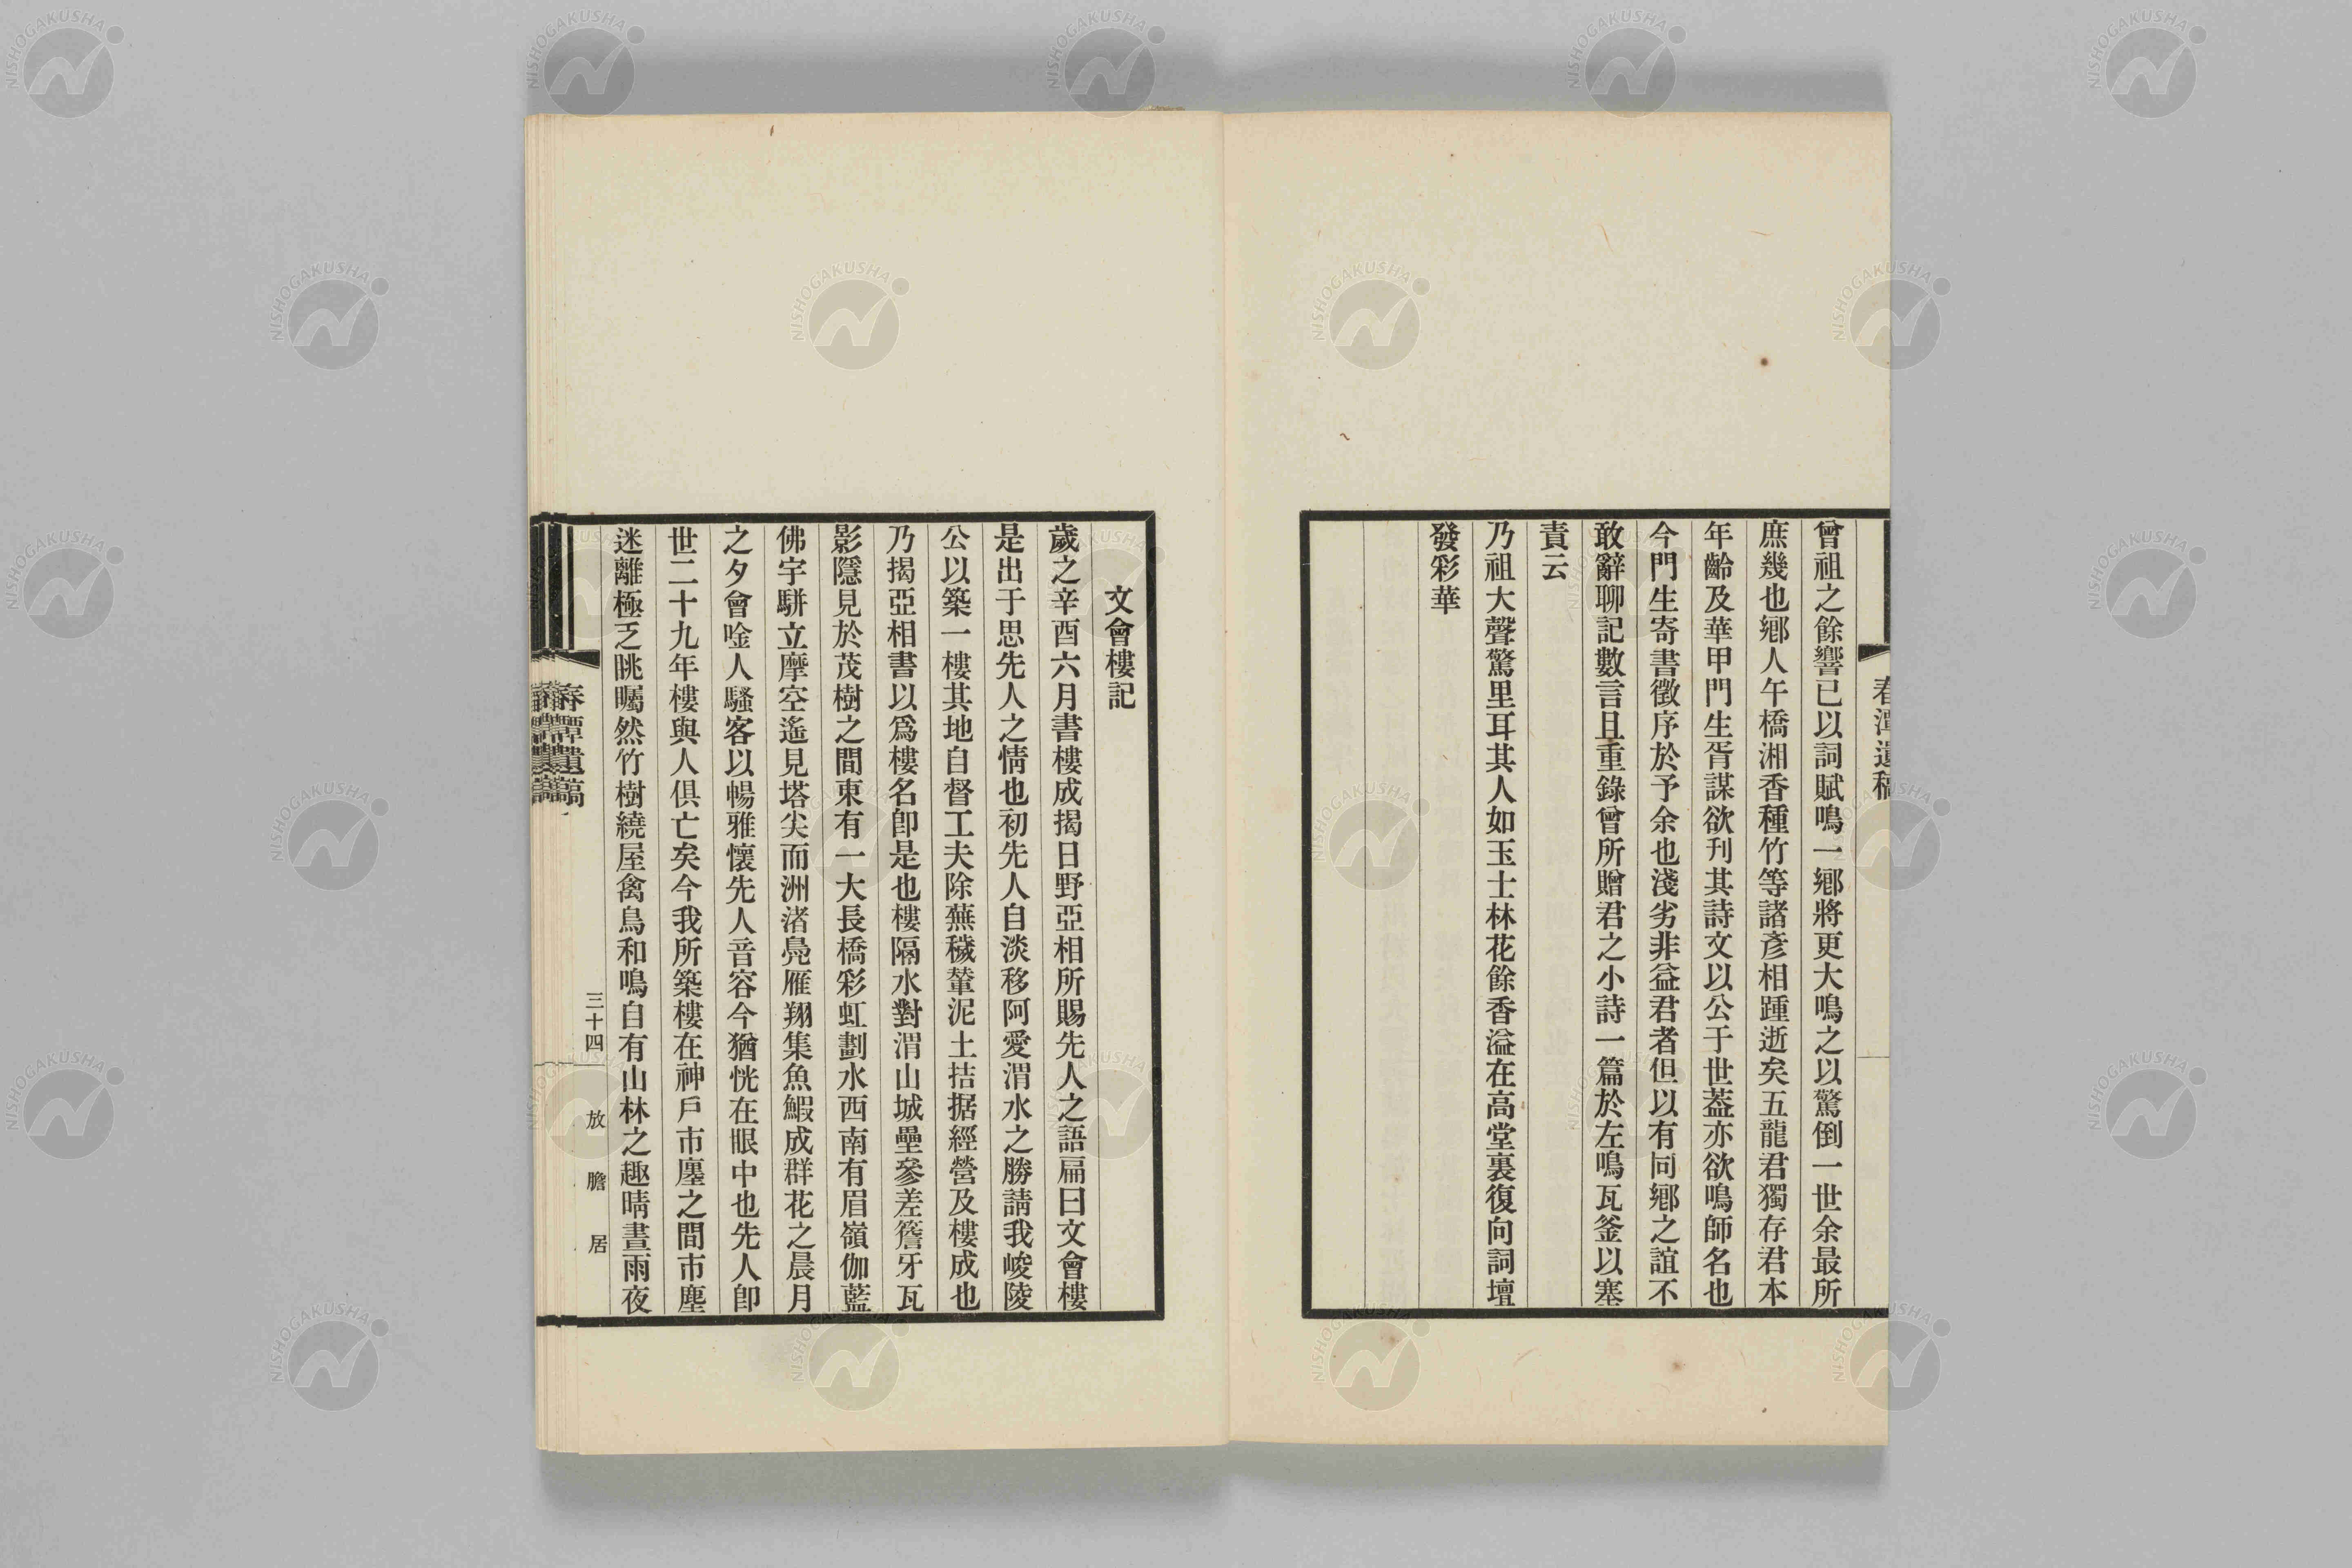 春潭遺稿
曾祖之餘響已以詞賦鳴一鄕將更大鳴之以驚倒一世余最所
庶幾也鄕人午橋湘香種竹等諸彥相踵逝矣五龍君獨存君本
年齡及華甲門生胥謀欲刊其詩文以公于世葢亦欲鳴師名也
今門生寄書徵序於予余也淺劣非益君者但以有同鄕之誼不
敢辭聊記數言且重錄曾所贈君之小詩一篇於左鳴瓦釜以塞
責云
乃祖大聲驚里耳其人如玉士林花餘香溢在高堂裏復向詞壇
發彩華
文會樓記
歲之辛酉六月書樓成揭日野亞相所賜先人之語扁曰文會樓
是出于思先人之情也初先人自淡移阿愛渭水之勝請我峻陵
公以築一樓其地自督工夫除蕪穢輦泥土拮据經營及樓成也
乃揭亞相書以爲樓名卽是也樓隔水對渭山城壘參差簷牙瓦
影隱見於茂樹之間東有一大長橋彩虹劃水西南有眉嶺伽藍
佛宇駢立摩空遙見塔尖而洲渚鳧雁翔集魚鰕成群花之晨月
之夕會唫人騷客以暢雅懷先人音容今猶恍在眼中也先人卽
世二十九年樓與人俱亡矣今我所築樓在神戶市廛之間市塵
迷離極乏眺矚然竹樹繞屋禽鳥和鳴自有山林之趣晴晝雨夜
春潭遺稿
三十四
放膽居
NISHOGAKUSHA